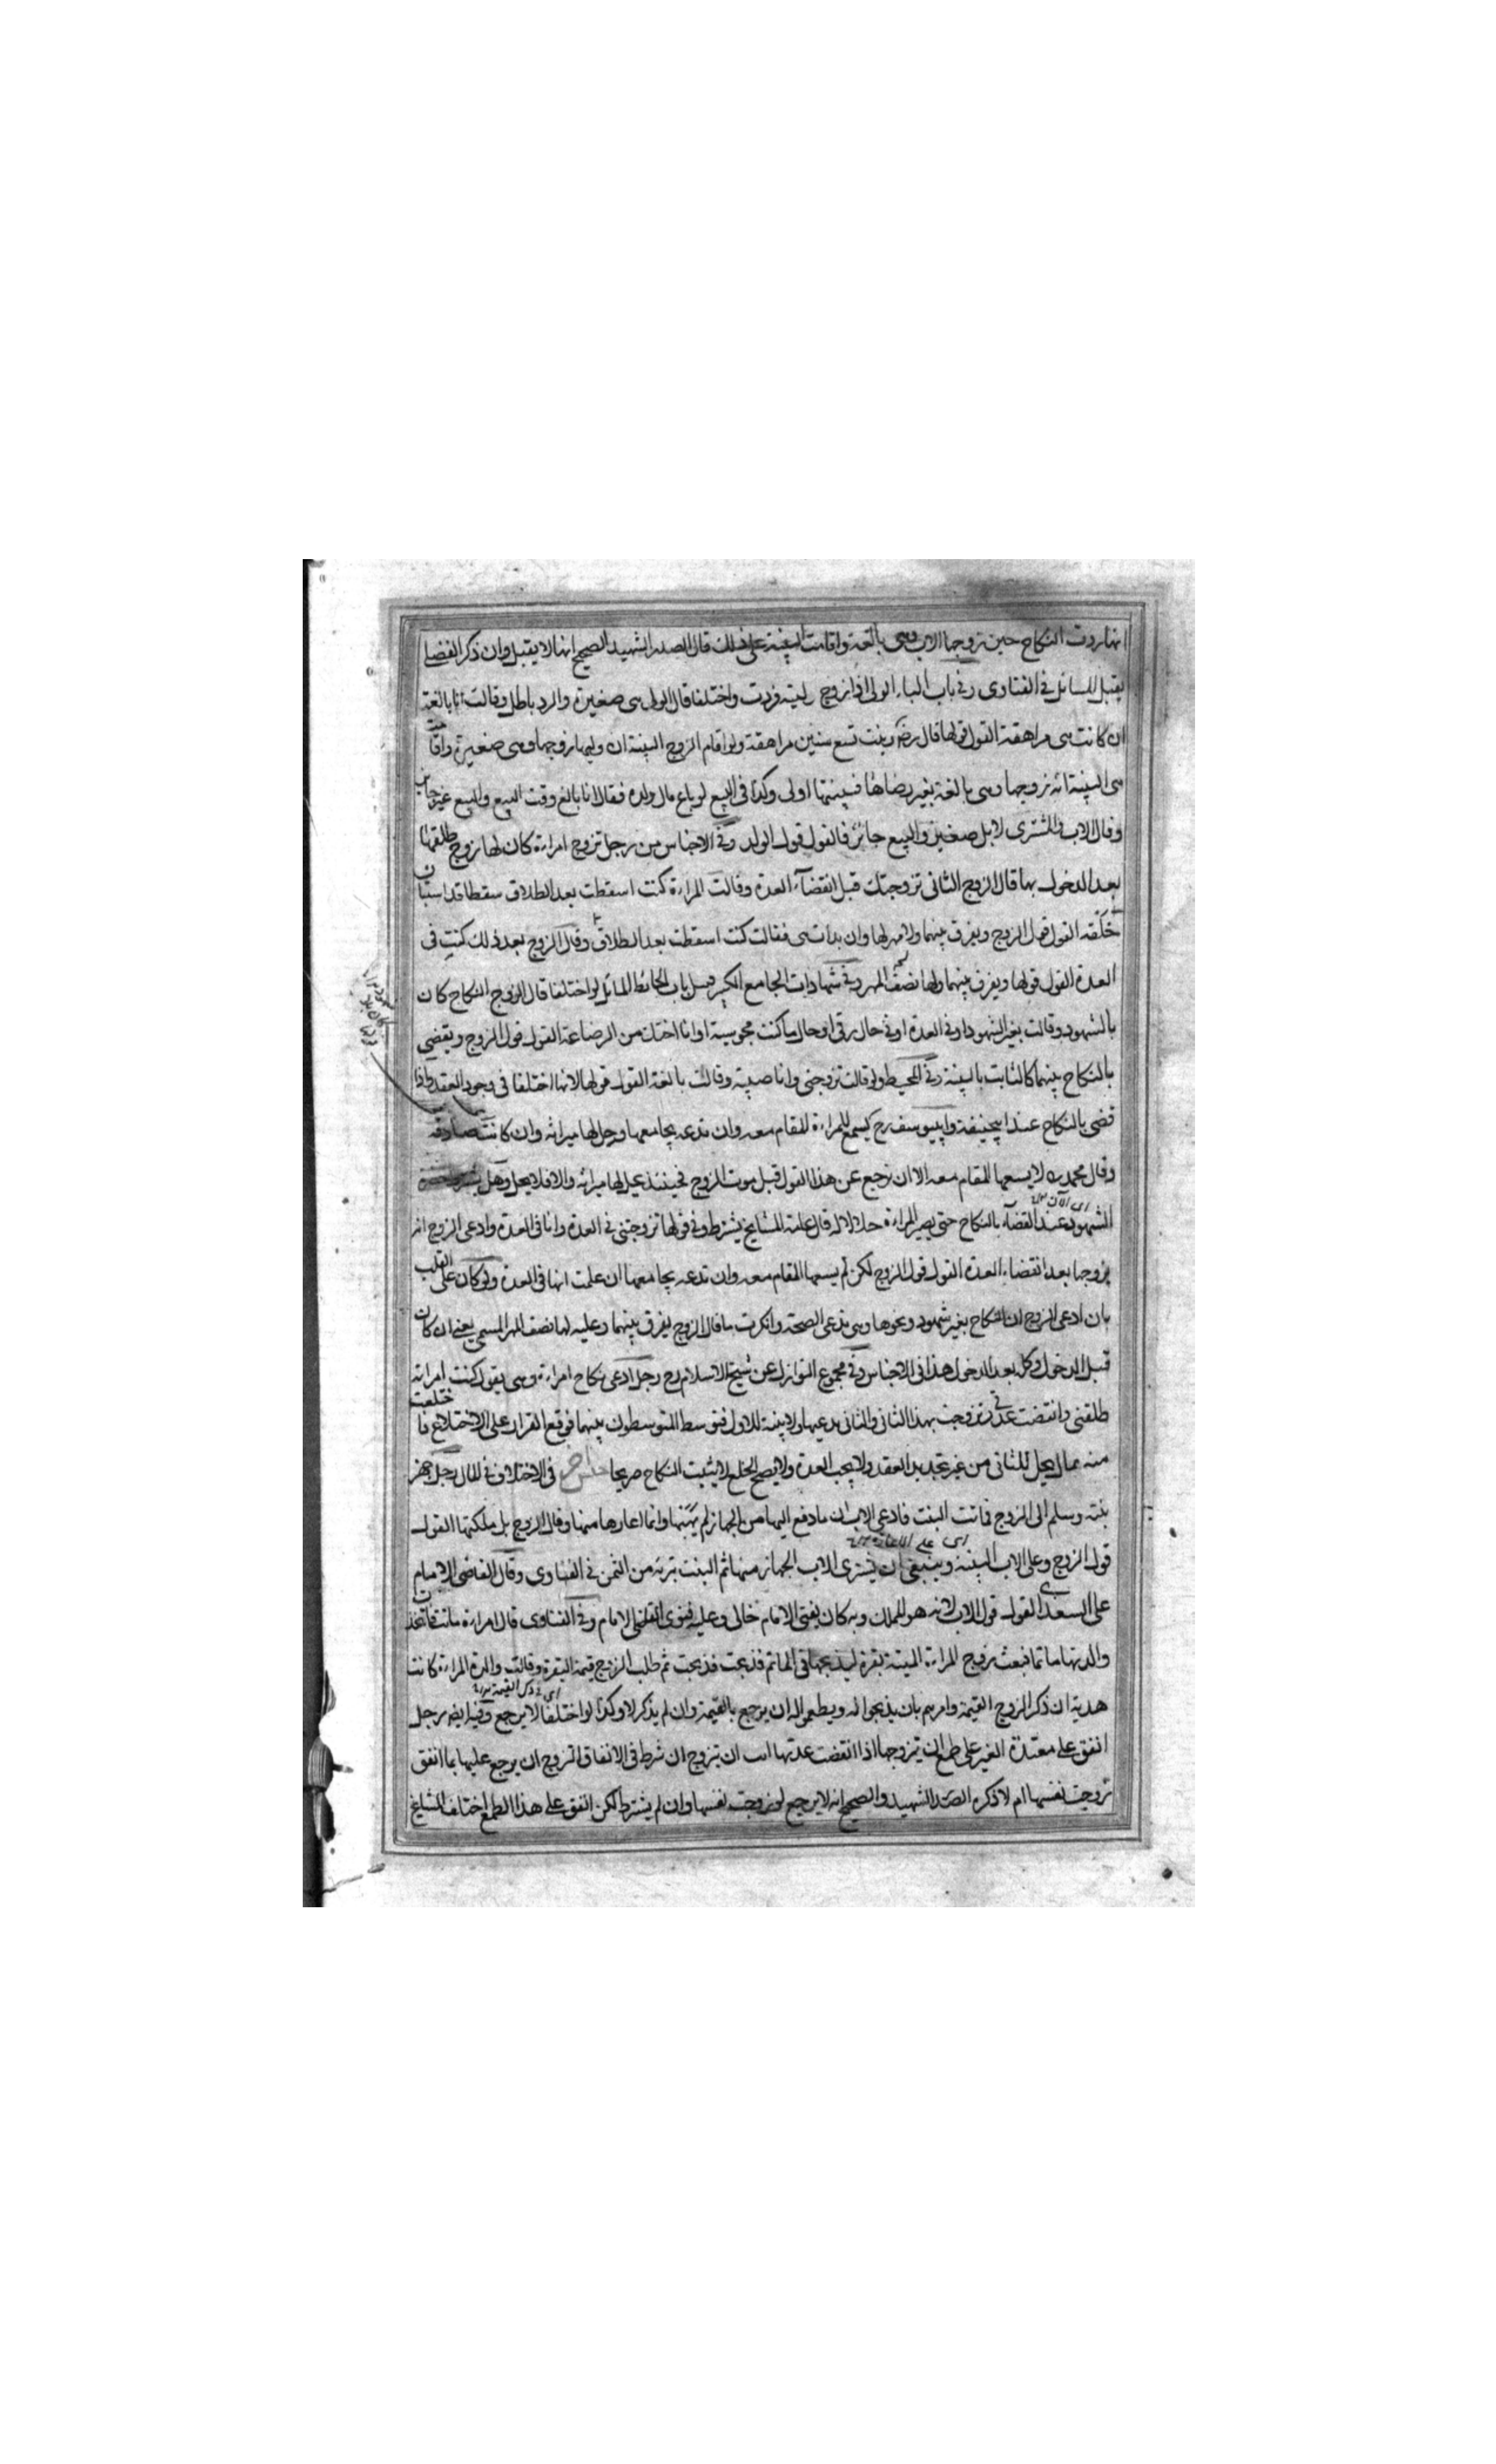 انها ردت النكاح حين زوجها الاب وهى بالغة واقامت البينة على ذلك قال الصدر الشهيد الصحيح انها لا يقبل وان ذكر القضا
يقبل للسائل فى الفتاوى وفى باب الباء الولى اذا زوج وليته فردت واختلفا قال الولى هى صغيرة والرد باطل وقالت انا بالغة
ان كانت هى مراهقة القول قولها قال رضه وبنت تسع سنين مراهقة ولو اقام الزوج البينة ان وليها زوجها وهى صغيرة واقامت
هى البينة انه زوجها وهى بالغة بغير رضاها فبينتها اولى وكذا فى البيع لو باع مال ولده فقال انا بالغ وقت البيع والبيع غير جايز
وقال الاب والمشترى لا بل صغير والبيع جائز فالقول قول الولد وفى الاجناس من رجل تزوج امراءة كان لها زوج طلقها
بعد الدخول بها قال الزوج الثانى تزوجتك قبل انقضاء العدة وقالت المراءة كنت اسقطت بعد الطلاق سقطا قد استبان
خلقه القول قول الزوج ويفرق بينهما ولا مهر لها وان بدات هى فقالت كنت اسقطت بعد الطلاق وقال الزوج بعد ذلك كنت فى
العدة القول قولها ويفرق بينهما ولها نصف المهر وفى شهادات الجامع الكبير قبل باب الحائط المائل لو اختلفا قال الزوج النكاح كان
بالشهود وقالت بغير الشهود او فى العدة او فى حال رقى او حال ما كنت مجوسية او انا اختك من الرضاعة القول قول الزوج ويقضى
بالنكاح بينهما كالثابت بالبينة وفى المحيط ولو قالت تزوجنى وانا صبية وقالت بالغة القول قولها لانها اختلفا فى وجود العقد واذا
قضى بالنكاح عند ابيحنيفة وابييوسف رح يسمع للمراءة المقام معه وان تدعه يجامعها وحل لها ميراثه وان كانت صادقة
وقال محمد رح لا يسعها المقام معه الا ان ترجع عن هذا القول قبل موت الزوج فحينئذ يحل لها ميراثه والا فلا يحل وهل يشترط حضرة
الشهود عند القضاء بالنكاح حتى يصير المراءة حلالا له قال عامة المشايخ يشترط وفى قولها تزوجتنى فى العدة وانا فى العدة وادعى الزوج انه
تزوجها بعد انقضاء العدة القول قول الزوج لكن لم يسعها المقام معه وان تدعه يجامعها ان علمت انها فى العدة ولو كان على القلب
بان ادعى الزوج ان النكاح بغير شهود ونحوها وهى تدعى الصحة وانكرت ما قال الزوج يفرق بينهما وعليه لها نصف المهر المسمى يعنى ان كان
قبل الدخول وكله بعد الدخول هذا فى الاجناس وفى مجموع النوازل عن شيخ الاسلام رح رجل ادعى نكاح امراءة وهى يقول كنت امراته
طلقنى وانقضت عدتى وتزوجت بهذا الثانى والثانى يدعيها ولا بينة للاول فتوسط المتوسطون بينهما فوقع القرار على الاختلاع فاختلعت
منه بمال يحل للثانى من غير تجديد العقد ولا يجب العدة ولا يصح الخلع لا يثبت النكاح صريحا جنس آخر فى الاختلاف فى المال رجل جهز
بنته وسلم الى الزوج فماتت البنت فادعى الاب ان ما دفع اليها من الجهاز لم يهبها وانما اعارها منها وقال الزوج بل ملكتها القول
قول الزوج وعلى الاب البينة وينبغى ان يشترى الاب الجهاز منها ثم البنت تبرئه من الثمن فى الفتاوى وقال القاضى الامام
على السغدى القول قول الاب لانه هو المملك وبه كان يفتى الامام خالى وعليه فتوى القاضى الامام وفى الفتاوى قال امراءة ماتت فاتخذت
والدتها ماتما فبعث زوج المراءة الميتة بقرة ليذبحها فى الماتم فذبحت ثم طلب الزوج قيمة البقرة وقالت والدة المراءة كانت
هدية ان ذكر الزوج القيمة وامرهم بان يذبحوا له ويطعموا له ان يرجع بالقيمة وان لم يذكر لا وكذا لو اختلفا لا يرجع وفيه ايضا رجل
انفق على معتدة الغير على طمع ان يتزوجها اذا انقضت عدتها ابت ان يتزوج ان شرط فى الانفاق التزوج ان يرجع عليها بما انفق
زوجت نفسها ام لا ذكره الصدر الشهيد والصحيح انه لا يرجع لو زوجت نفسها وان لم يشترط لكن انفق على هذا الطمع اختلف المشايخ